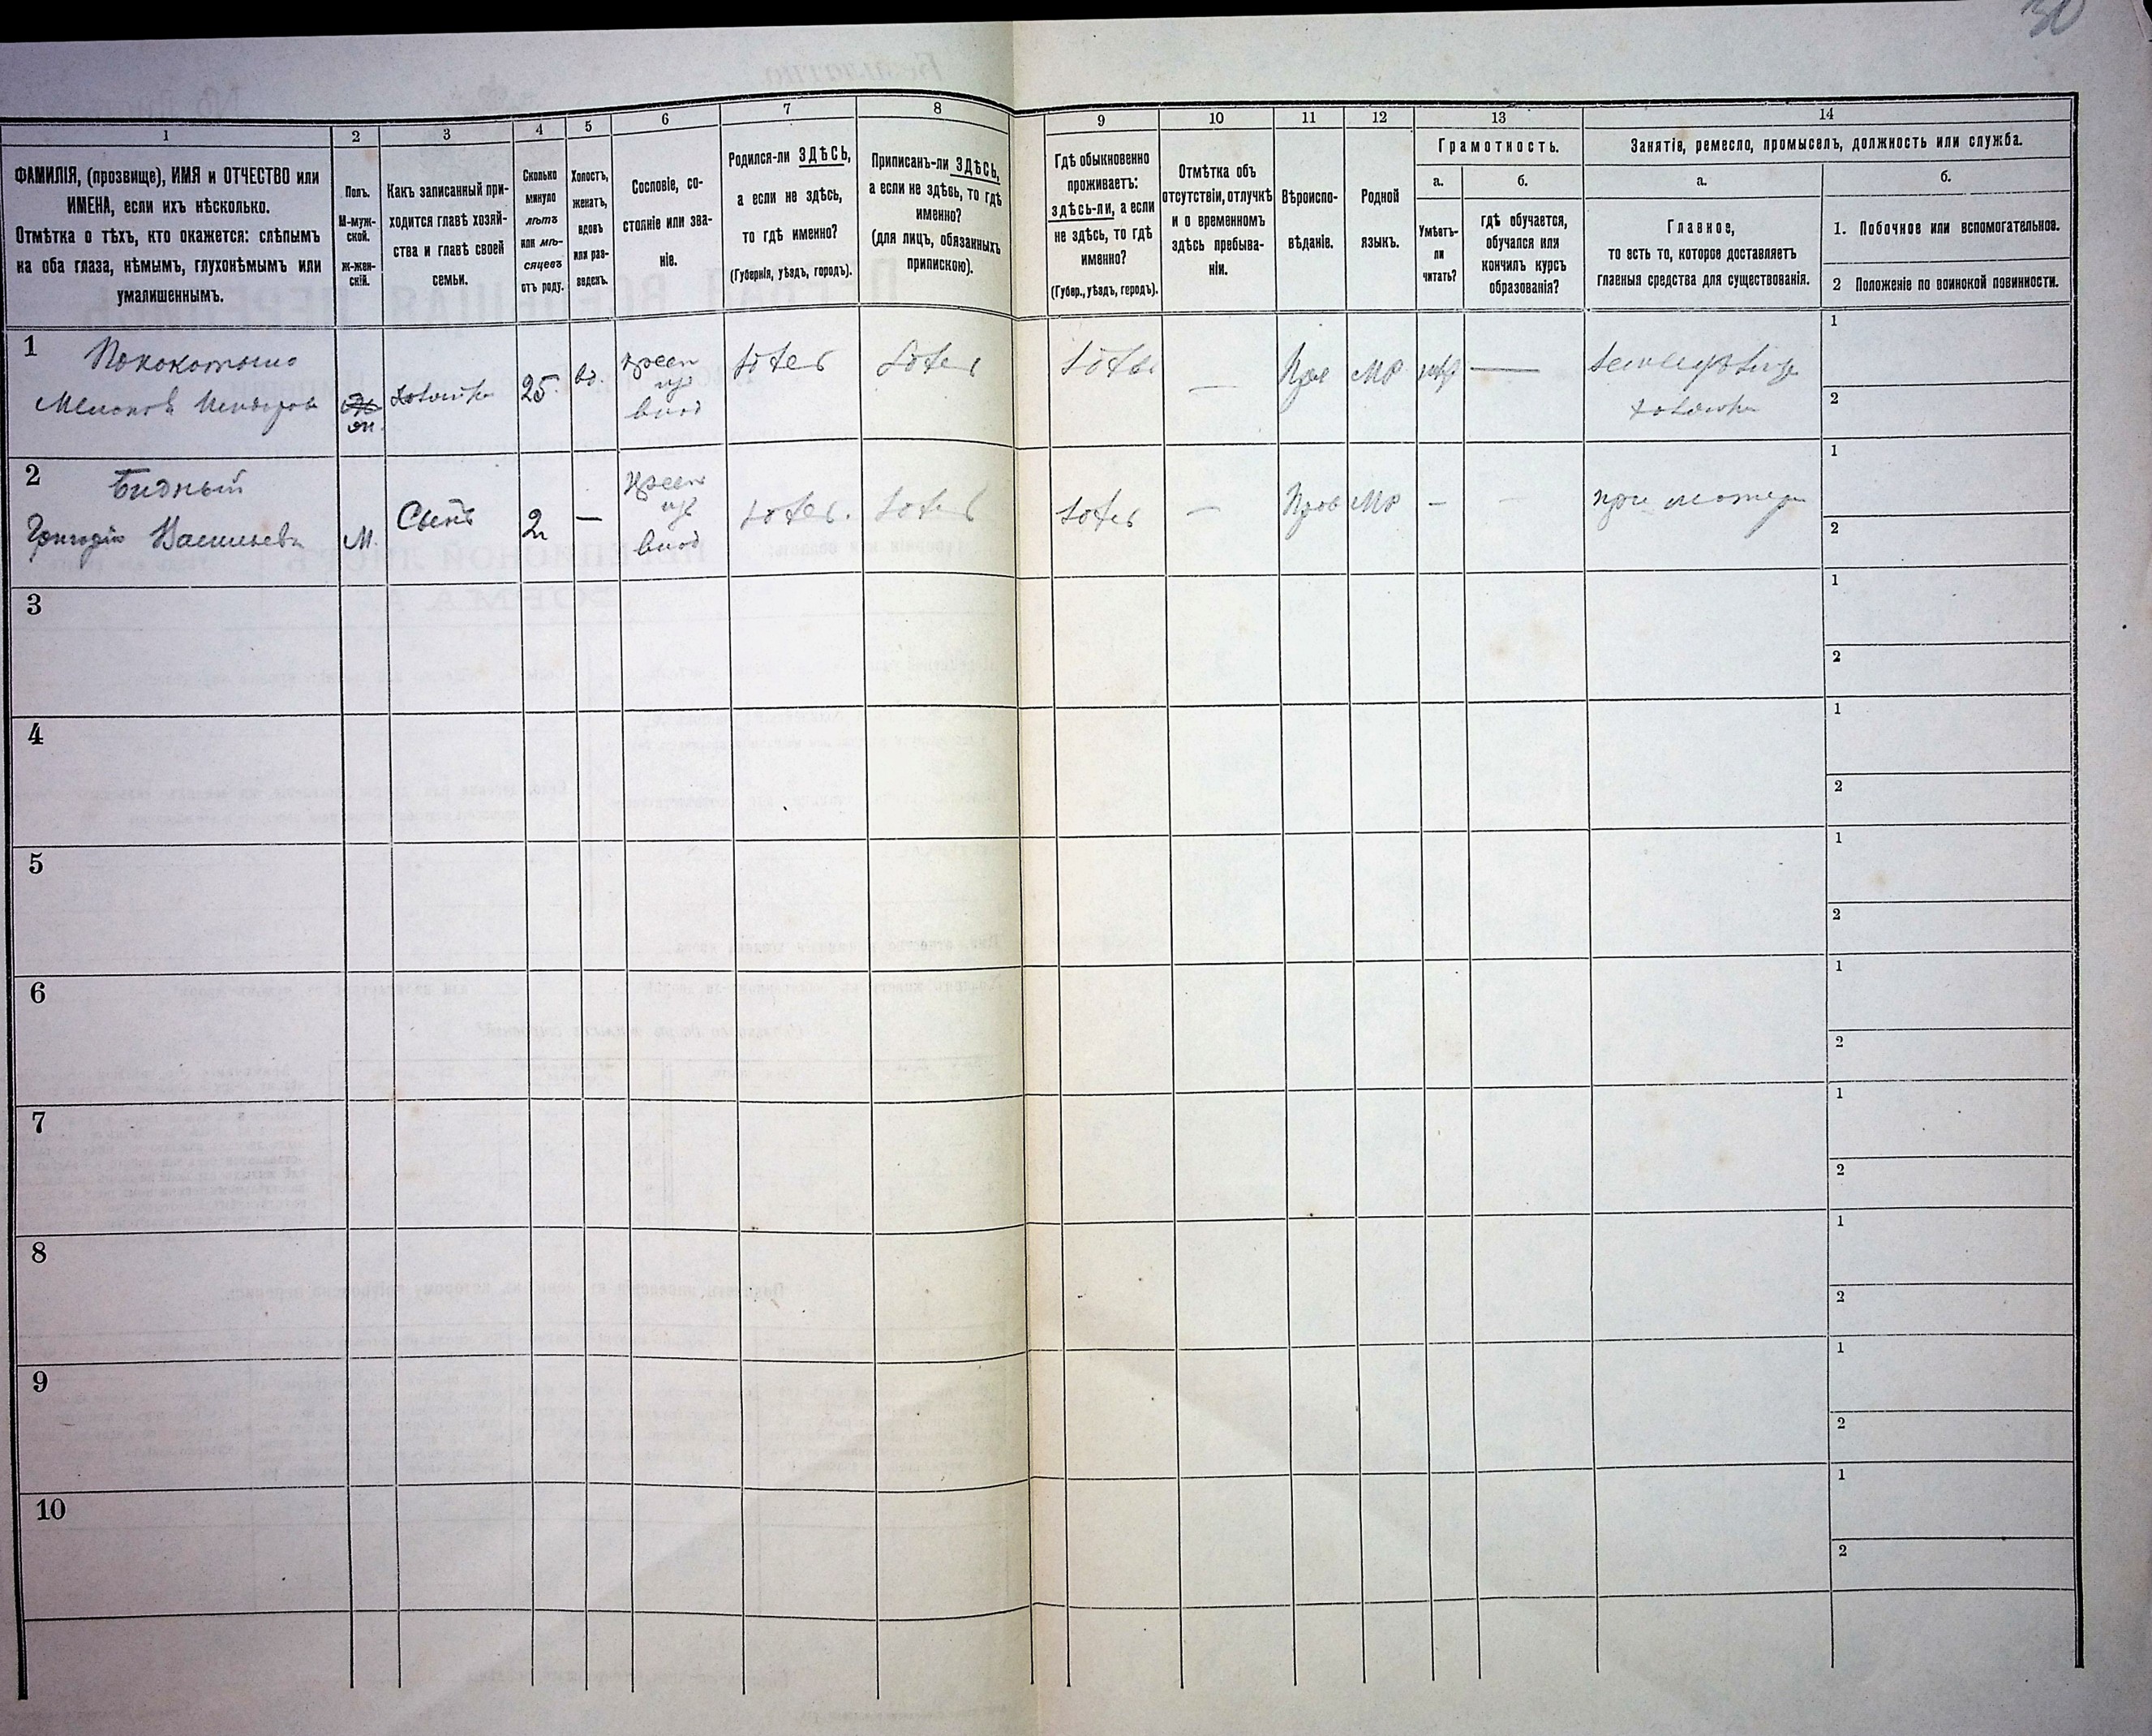 30
1
2
3
4
5
6
7
8
9
10
11
12
13
14
ФАМИЛІЯ, (прозвище), ИМЯ и ОТЧЕСТВО или
ИМЕНА, если ихъ нѣсколько.
Отмѣтка о тѣхъ, кто окажется: слѣпымъ
на оба глаза, нѣмымъ, глухонѣмымъ или
умалишеннымъ.
Полъ.
М-муж-
ской.
ж-жен-
скій.
Какъ записанный при-
ходится главѣ хозяй-
ства и главѣ своей
семьи.
Сколько
минуло
лѣтъ
или мѣ-
сяцевъ
отъ роду.
Холостъ,
женатъ,
вдовъ
или раз-
веденъ.
Сословіе, со-
стояніе или зва-
ніе.
Родился-ли ЗДѢСЬ,
а если не здѣсь,
то гдѣ именно?
(Губернія, уѣздъ, городъ).
Приписанъ-ли ЗДѢСЬ,
а если не здѣсь, то гдѣ
именно?
(для лицъ, обязанныхъ
припискою).
Гдѣ обыкновенно
проживаетъ:
здѣсь-ли, а если
не здѣсь, то гдѣ
именно?
(Губер., уѣздъ, городъ).
Отмѣтка объ
отсутствіи, отлучкѣ
и о временномъ
здѣсь пребыва-
ніи.
Вѣроиспо-
вѣданіе.
Родной
языкъ.
Грамотность.
а.
Умѣетъ-
ли
читать?
б.
гдѣ обучается,
обучался или
кончилъ курсъ
образованія?
Занятіе, ремесло, промыселъ, должность или служба.
а.
Главное,
то есть то, которое доставляетъ
главныя средства для существованія.
б.
1. Побочное или вспомогательное.
2 Положеніе по воинской повинности.
1
25.
вд.
—
—
1
2
2
Бидный
Григорій Васильевъ
М.
Сынъ
2
—
—
Пров
МР
—
—
при матери
1
2
3
1
2
4
1
2
5
1
2
6
1
2
7
1
2
8
1
2
9
1
2
10
1
2